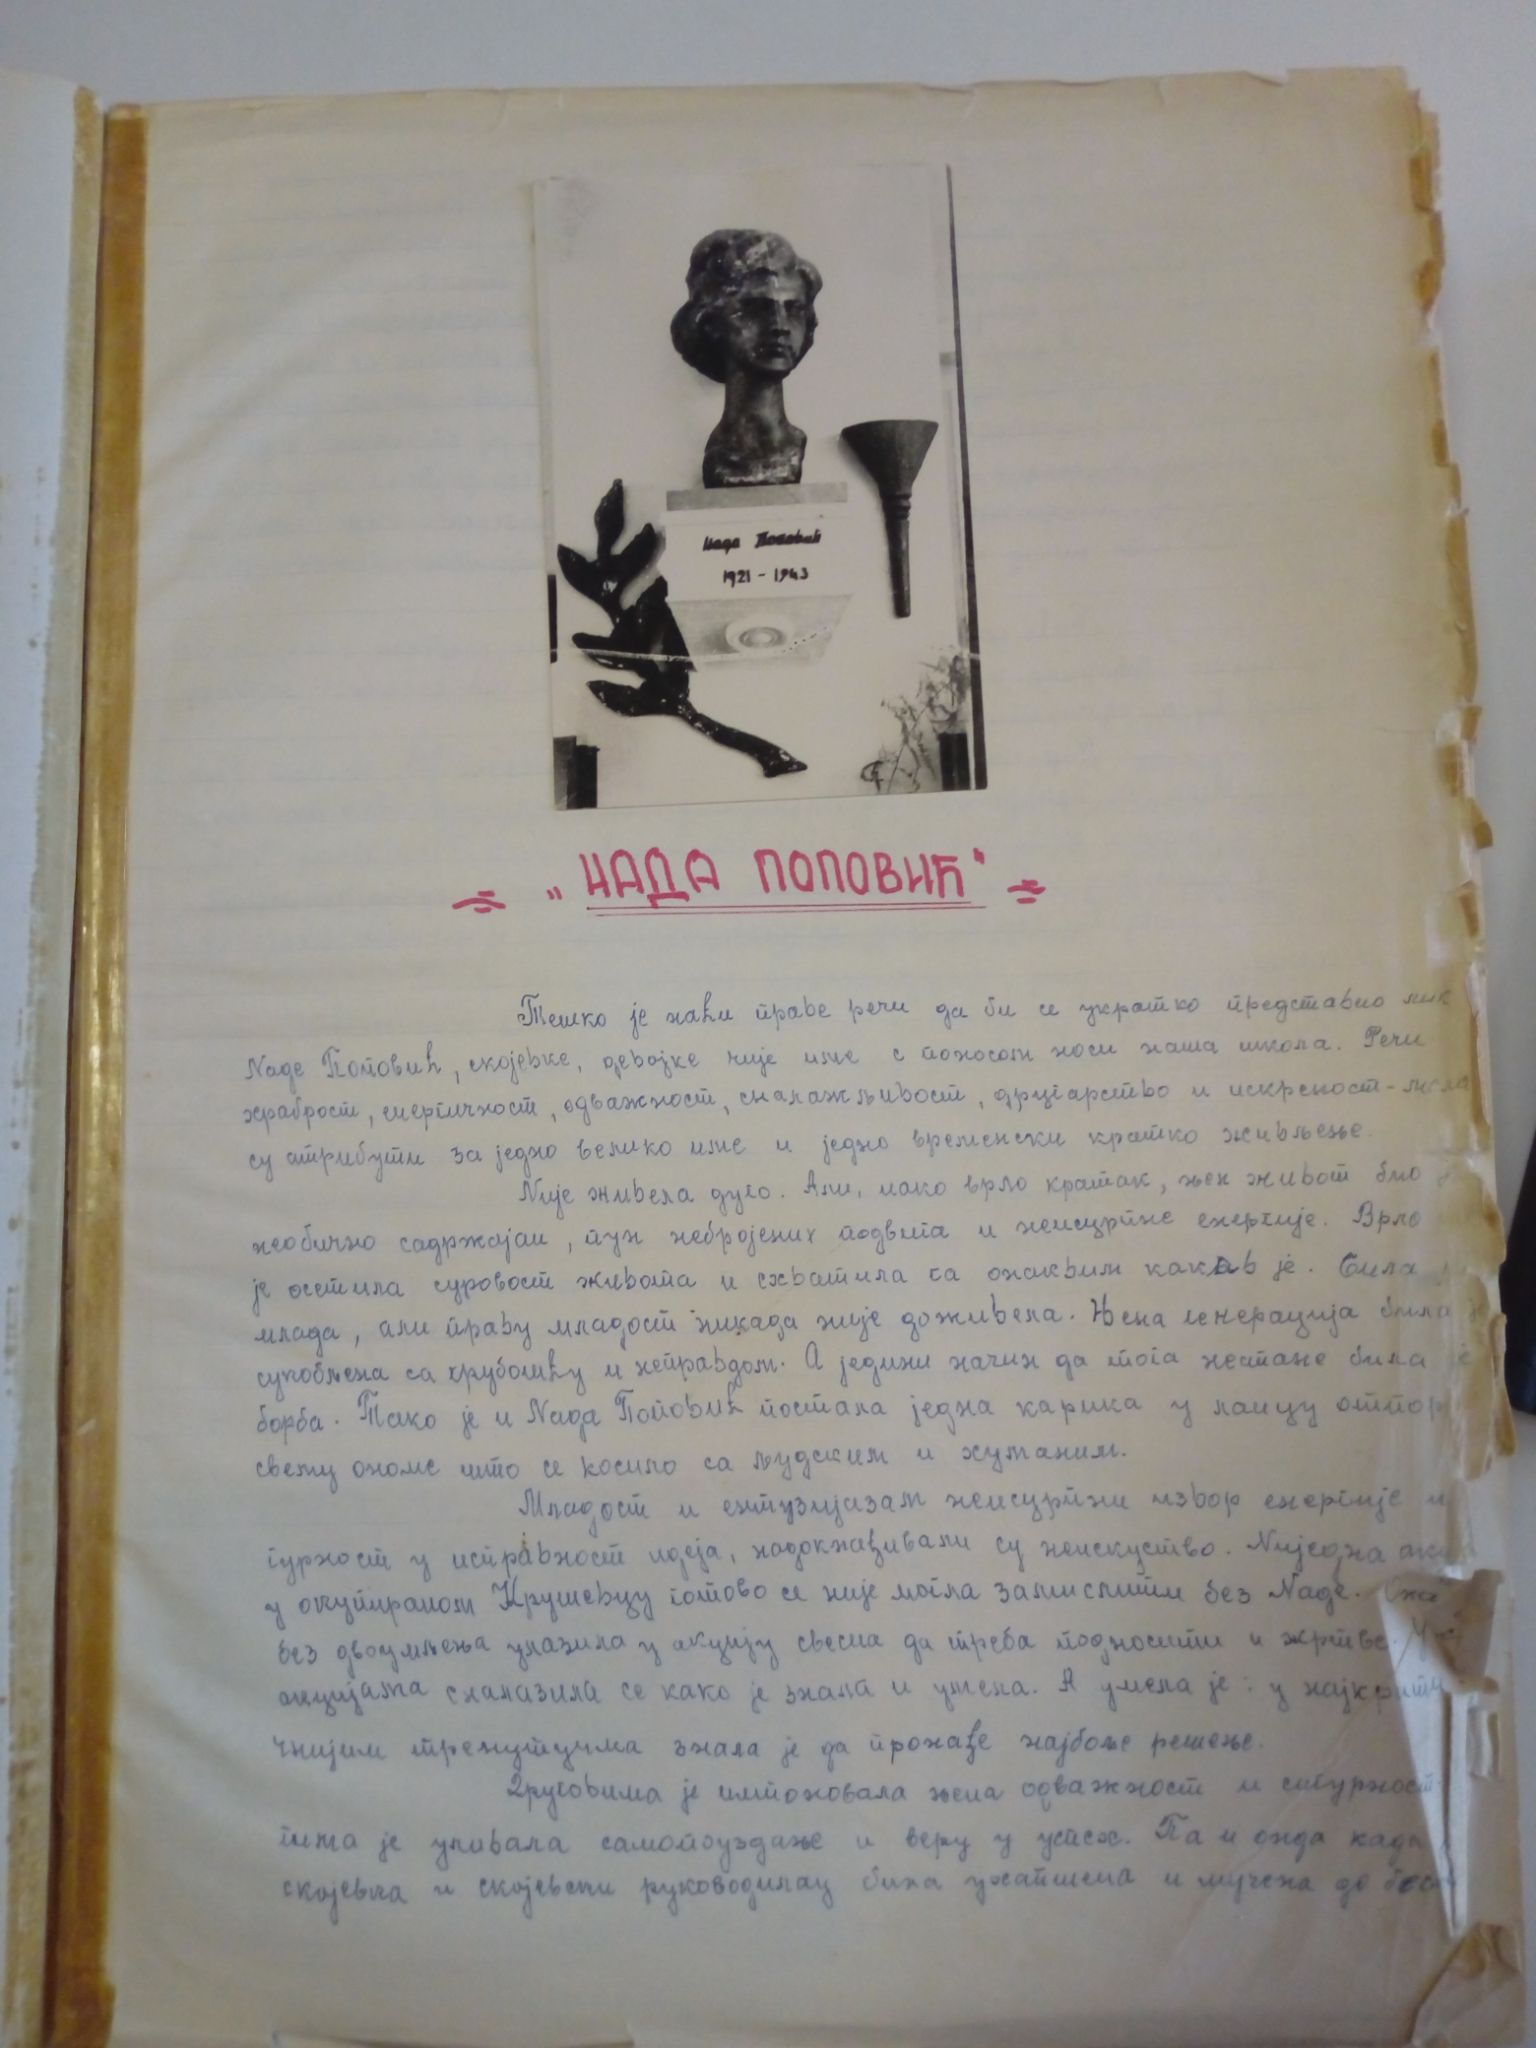 Нада Поповић
1921 - 1943
„НАДА ПОПОВИЋ"
Тешко је наћи праве речи да би се укратко представио лик
Наде Поповић, скојевке, девојке чије име с поносом носи наша школа. Речи
храброст, енергичност, одважност, сналажљивост, другарство и искреност -
су атрибути за једно велико име и једно временски кратко живљење.
Није живела дуго. Али, иако врло кратак, њен живот био
необично садржајан, пун небројених подвига и неисцрпне енергије. Врло
је осетила суровост живота и схватила га онаквим какав је. Била
млада, али праву младост никада није доживела. Њена генерација била је
сукобљена са грубошћу и неправдом. А једини начин да тога нестане била је
борба. Тако је и Нада Поповић постала једна карика у ланцу отпора
свему ономе што се косило са људским и хуманим.
Младост и ентузијазам неисцрпни извор енергије и
гурност у исправност идеја, надокнађивали су неискуство. Ниједна
у окупираном Крушевцу готово се није могла замислити без Наде. Она
без двоумљења улазила у акцију свесна да треба подносити и жртве.
акцијама сналазила се како је знала и умела. А умела је: у најкрити
чнијим тренуцима знала је да пронађе најбоље решење.
Друговима је импоновала њена одважност и сигурност
њима је уливала самопоуздање и веру у успех. Па и онда када
скојевка и скојевски руководилац била ухапшена и мучена до